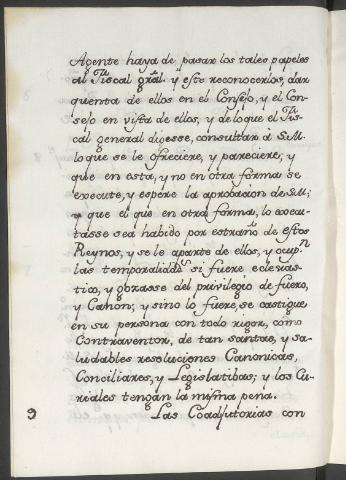 Agente haya de pasar los tales papeles
al Fiscal gral. y este reconocerlos, dar
quenta de ellos en el Consejo, y el Con-
sejo en vista de ellos, y de lo que el Fis-
cal general digesse, consultar à S.M.
lo que se le ofreciere, y pareciere, y
que en esta, y no en otra forma se
execute, y espere la aprobacion de S.M;
y que el que en otra forma, lo execu-
tasse sea habido por estraño de estos
Reynos, y se le aparte de ellos, y ocupn
las temporalidads si fuere eclesias-
tico, y gozasse del privilegio de fuero,
y Canon; y sino lo fuere, se castigue
en su persona con todo rigor, como
Contraventor, de tan santas, y sa-
ludables resoluciones Canonicas,
Conciliares, y Legislatibas; y los Cu-
riales tengan la misma pena.
9 Las Coadjutorias con